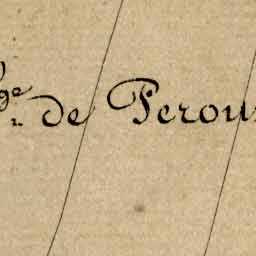 ge de Perou